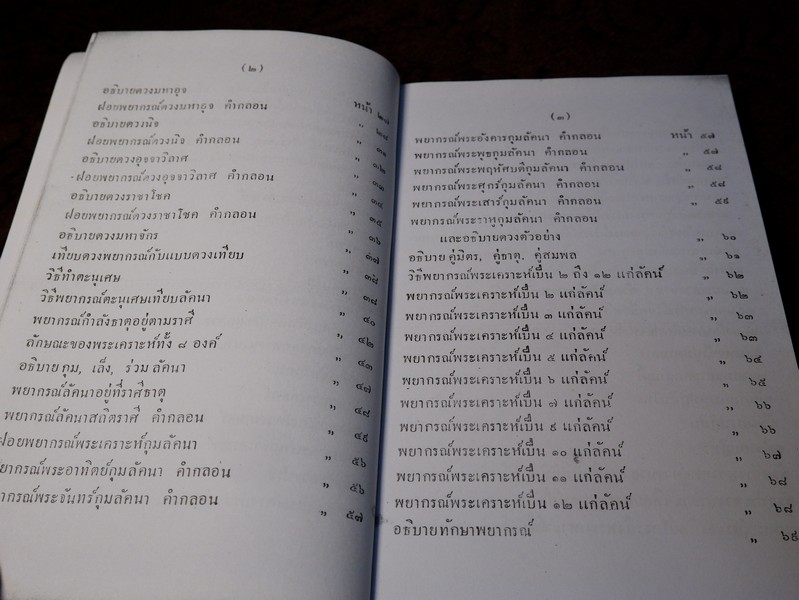 (๒)
อธิบายดวงมหาอุจ หน้า
ฝอยพยากรณ์ดวงมหาอุจ คำกลอน "
อธิบายดวงนิจ "
ฝอยพยากรณ์ดวงนิจ คำกลอน " ๓๒
อธิบายดวงอุจจาวิลาศ " ๓๓
ฝอยพยากรณ์ดวงอุจจาวิลาศ คำกลอน " ๓๔
อธิบายดวงราชาโชค " ๓๕
ฝอยพยากรณ์ดวงราชาโชค คำกลอน " ๓๖
อธิบายดวงมหาจักร " ๓๗
เทียบดวงพยากรณ์กับแบบดวงเทียบ "
วิธีทำตะนุเศษ " ๓๘
วิธีพยากรณ์ตะนุเศษเทียบลัคนา " ๔๐
พยากรณ์กำลังธาตุอยู่ตามราศี " ๔๒
ลักษณะของพระเคราะห์ทั้ง ๘ องค์ " ๔๓
อธิบาย กุม, เล็ง, ร่วม ลัคนา " ๔๗
พยากรณ์ลัคนาอยู่ที่ราศีธาตุ " ๔๘
พยากรณ์ลัคนาสถิตราศี คำกลอน " ๔๙
ฝอยพยากรณ์พระเคราะห์กุมลัคนา " ๕๖
ยากรณ์พระอาทิตย์กุมลัคนา คำกลอน " ๕๖
ากรณ์พระจันทร์กุมลัคนา คำกลอน " ๕๗
(๓)
พยากรณ์พระอังคารกุมลัคนา คำกลอน หน้า ๕๗
พยากรณ์พระพุธกุมลัคนา คำกลอน " ๕๗
พยากรณ์พระพฤหัสบดีกุมลัคนา คำกลอน " ๕๘
พยากรณ์พระศุกร์กุมลัคนา คำกลอน " ๕๘
พยากรณ์พระเสาร์กุมลัคนา คำกลอน " ๕๙
พยากรณ์พระราหูกุมลัคนา คำกลอน
และอธิบายดวงตัวอย่าง " ๖๐
อธิบาย คู่มิตร, คู่ธาตุ, คู่สมพล " ๖๑
วิธีพยากรณ์พระเคราะห์เป็น ๒ ถึง ๑๒ แก่ลัคน์ " ๖๒
พยากรณ์พระเคราะห์เป็น ๒ แก่ลัคน์ " ๖๒
พยากรณ์พระเคราะห์เป็น ๓ แก่ลัคน์ " ๖๓
พยากรณ์พระเคราะห์เป็น ๔ แก่ลัคน์ " ๖๓
พยากรณ์พระเคราะห์เป็น ๕ แก่ลัคน์ " ๖๔
พยากรณ์พระเคราะห์เป็น ๖ แก่ลัคน์ " ๖๕
พยากรณ์พระเคราะห์เป็น ๗ แก่ลัคน์ " ๖๖
พยากรณ์พระเคราะห์เป็น ๙ แก่ลัคน์ " ๖๖
พยากรณ์พระเคราะห์เป็น ๑๐ แก่ลัคน์ " ๖๗
พยากรณ์พระเคราะห์เป็น ๑๑ แก่ลัคน์ " ๖๘
พยากรณ์พระเคราะห์เป็น ๑๒ แก่ลัคน์ " ๖๘
อธิบายทักษาพยากรณ์ " ๖๙